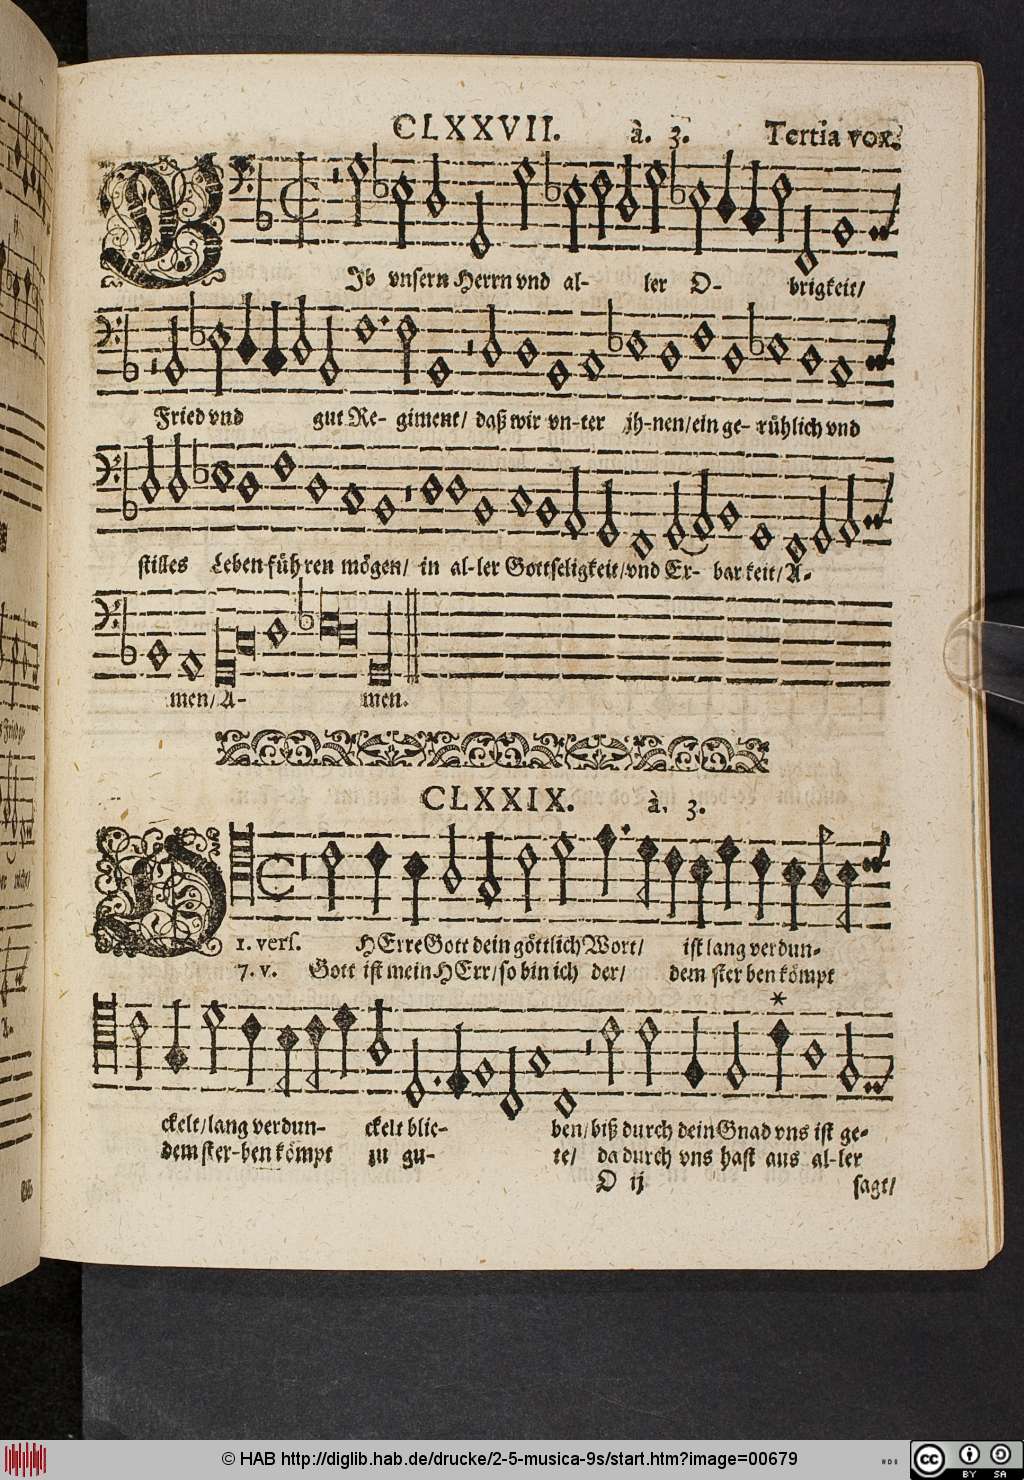 CLXXVII. à. 3. Tertia vox.
GJb vnsern Herrn vnd al- ler O- brigkeit/
Fried vnd gut Re- giment/ daß wir vn-ter jh-nen/ein ge- rühlich vnd
stilles Leben füh ren mögen/ in al-ler Gottseligkeit/vnd Er- bar keit/A-
men/A- men.
CLXXIX. à. 3.
1. vers. HErre Gott dein göttlich Wort/ ist lang verdun-
7. v. Gott ist mein HErr/so bin ich der/ dem ster ben kömpt
*
ckelt/lang verdun- ckelt blie- ben/biß durch dein Gnad vns ist ge-
dem ster-ben kömpt zu gu- te/ da durch vns hast aus al-ler
O ij sagt/
© HAB http://diglib.hab.de/drucke/2-5-musica-9s/start.htm?image=00679
cc BY SA